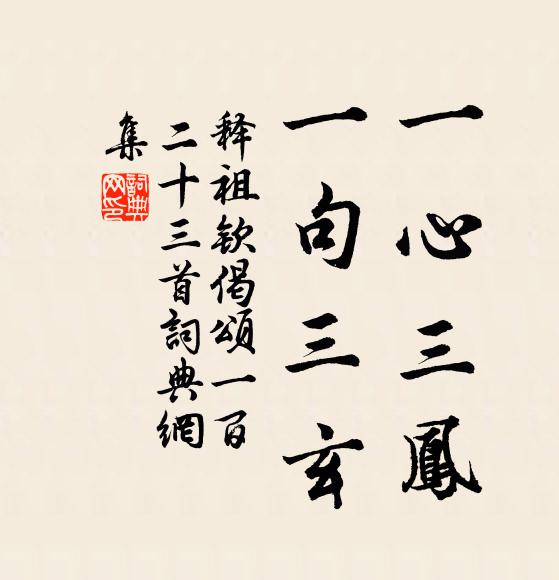 一心三鳳
一句三玄
释祖欽偈頌一百
二十三首詞典網
集
詞典
网印